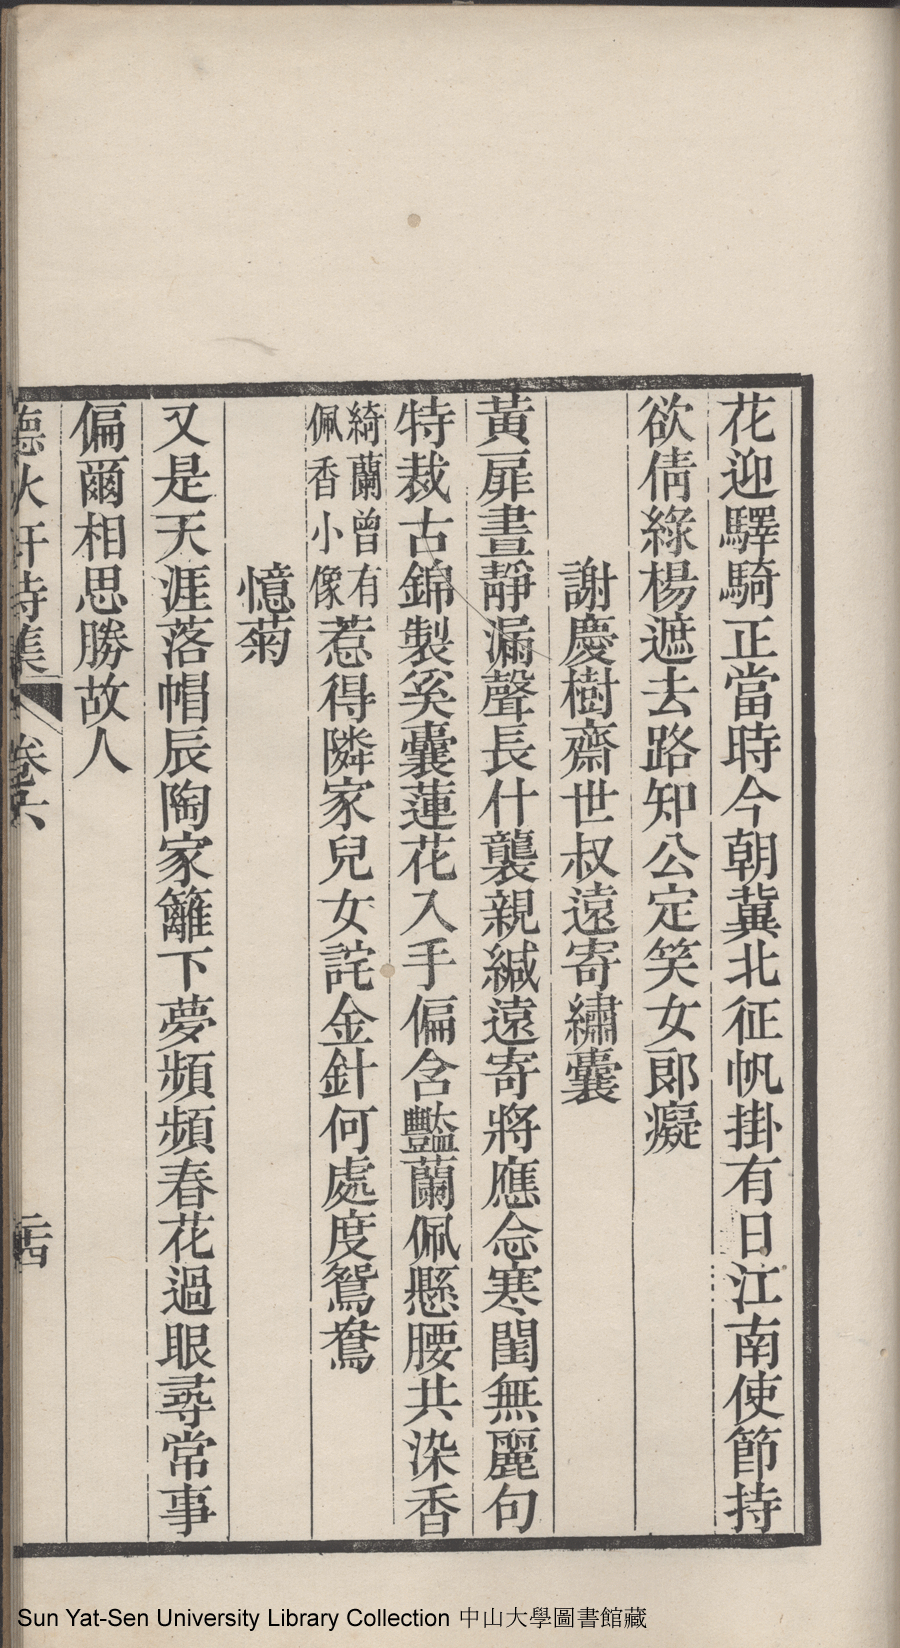 花迎驛騎正當時今朝冀北征帆掛有日江南使節持
欲倩綠楊遮去路知公定笑女郎癡
謝慶樹齋世叔遠寄繡囊
黃扉晝靜漏聲長什襲親緘遠寄將應念寒閨無麗句
特裁古錦製奚囊蓮花入手偏含豔蘭佩懸腰共染香
綺蘭曾有
佩香小像
惹得隣家兒女詫金針何處度鴛鴦
憶菊
又是天涯落帽辰陶家籬下夢頻頻春花過眼尋常事
偏爾相思勝故人
詩集 卷六
二十四
Sun Yat-Sen University Library Collection 中山大學圖書館藏